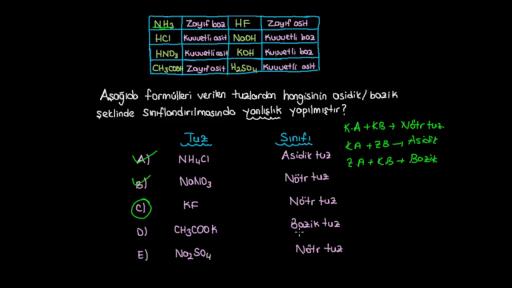 NH3 Zayıf baz HF Zayıf asit
HCl Kuvvetli asit NaOH Kuvvetli baz
HNO3 Kuvvetli asit KOH Kuvvetli baz
CH3COOH Zayıf asit H2SO4 Kuvvetli asit
Aşağıda formülleri verilen tuzlardan hangisinin asidik/bazik
şeklinde sınıflandırılmasında yanlışlık yapılmıştır?
Tuz Sınıfı
A) NH4Cl Asidik tuz
B) NaNO3 Nötr tuz
C) KF Nötr tuz
D) CH3COOK Bazik tuz
E) Na2SO4 Nötr tuz
K.A + KB → Nötr tuz
KA + ZB → Asidik
ZA + KB → Bazik